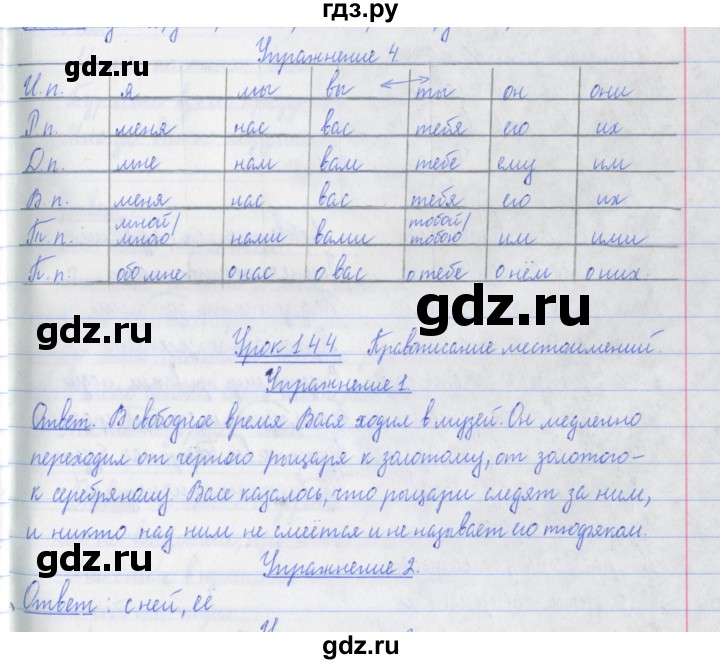 гдз.ру
Упражнение 4
gdz.ru
И.п. я мы вы ты он они
Р.п. меня нас вас тебя его их
Д.п. мне нам вам тебе ему им
В.п. меня нас вас тебя его их
Т.п. мной/мною нами вами тобой/тобою им ими
П.п. обо мне о нас о вас о тебе о нём о них.
gdz.ru
gdz.ru
Урок 144. Правописание местоимений.
Упражнение 1.
Ответ. В свободное время Вася ходил в музей. Он медленно
переходил от чёрного рыцаря к золотому, от золотого –
к серебряному. Васе казалось, что рыцари следят за ним,
и никто над ним не смеётся и не называет его тюфяком.
gdz.ru
gdz.ru
Упражнение 2.
Ответ: с ней, её
gdz.ru